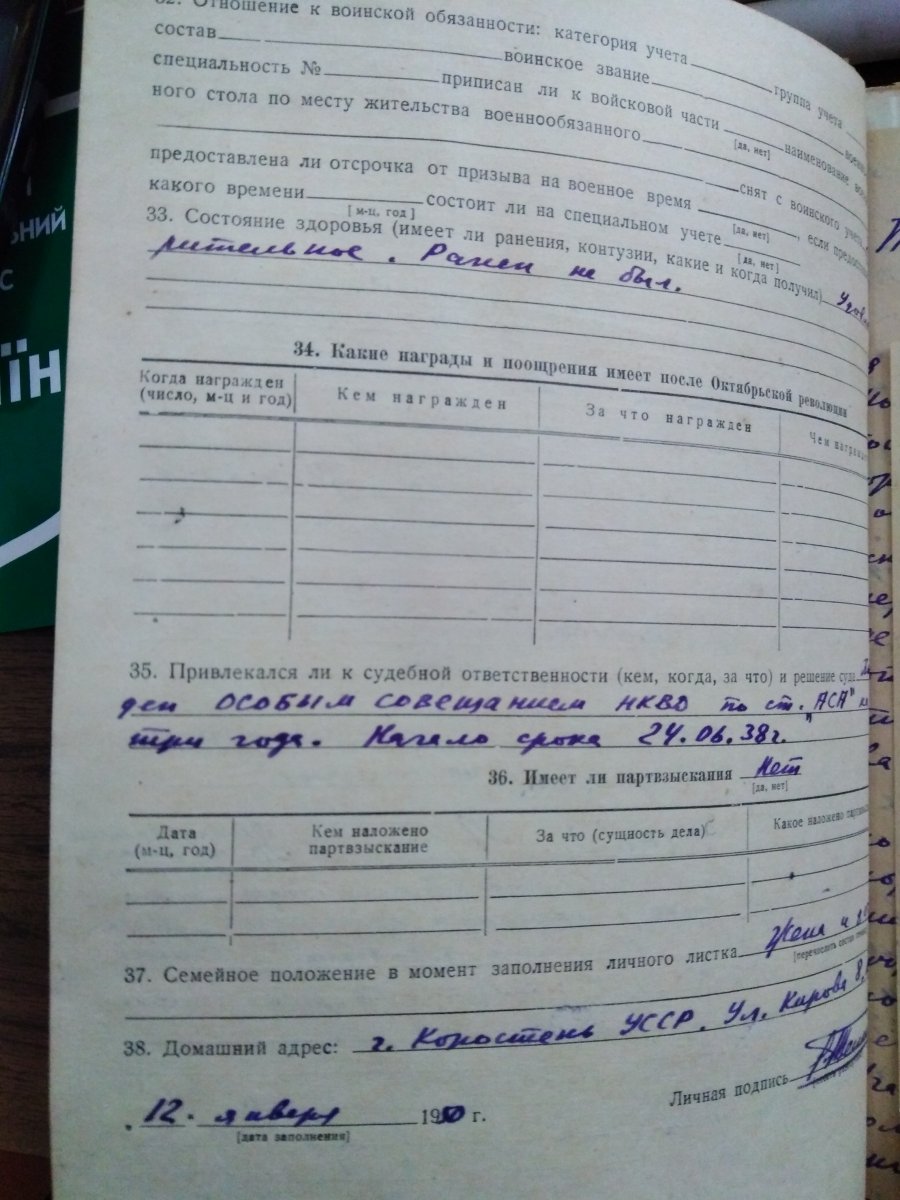 32. Отношение к воинской обязанности: категория учета
состав воинское звание группа учета
специальность № приписан ли к войсковой части
[да, нет]
ного стола по месту жительства военнообязанного наименование
снят с воинского учета
предоставлена ли отсрочка от призыва на военное время
[да, нет]
какого времени состоит ли на специальном учете , если
[м-ц, год] [да, нет]
33. Состояние здоровья (имеет ли ранения, контузии, какие и когда получил)
рительное. Ранен не был.
34. Какие награды и поощрения имеет после Октябрьской революции
Когда награжден (число, м-ц и год) Кем награжден За что награжден Чем
35. Привлекался ли к судебной ответственности (кем, когда, за что) и решение суда
ден ОСОБЫМ СОВЕЩАНИЕМ НКВД по ст. "АСА"
три года. Начало срока 24.06.38г.
36. Имеет ли партвзыскания Нет
[да, нет]
Дата (м-ц, год) Кем наложено партвзыскание За что (сущность дела) Какое наложено
37. Семейное положение в момент заполнения личного листка Жена и
[перечислить состав
38. Домашний адрес: г. Коростень УССР. Ул. Кирова 8,
Личная подпись
12. января 1950 г.
[дата заполнения]
ЬНИЙ
С
ЇН